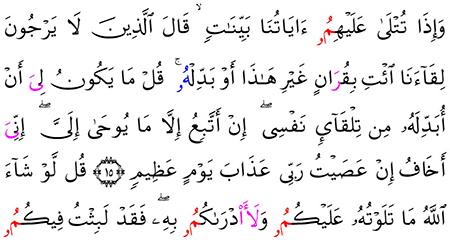 وَإِذَا تُتْلَىٰ عَلَيْهِمُۥ ءَايَاتُنَا بَيِّنَاتٖ ۙ قَالَ ٱلَّذِينَ لَا يَرْجُونَ
لِقَآءَنَا ٱئْتِ بِقُرَانٍ غَيْرِ هَٰذَا أَوْ بَدِّلْهُۥ ۚ قُلْ مَا يَكُونُ لِيَ أَنْ
أُبَدِّلَهُۥ مِن تِلْقَآيِٕ نَفْسِيٓ ۖ إِنْ أَتَّبِعُ إِلَّا مَا يُوحَىٰ إِلَيَّ ۖ إِنِّيَ
أَخَافُ إِنْ عَصَيْتُ رَبِّي عَذَابَ يَوْمٍ عَظِيمٖ ١٥ قُل لَّوْ شَآءَ
ٱللَّهُ مَا تَلَوْتُهُۥ عَلَيْكُمُۥ وَلَأَدْرَىٰكُمُۥ بِهِۦ ۖ فَقَدْ لَبِثْتُ فِيكُمُۥ